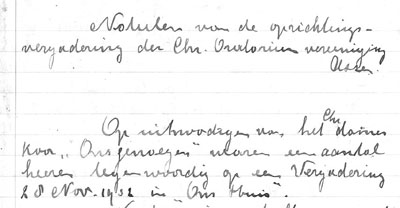 Notulen van de oprichtings-
vergadering der Chr. Oratorium vereeniging
Assen.
Op uitnoodigen van het Chr. dames
koor "Ons genoegen" waren een aantal
heeren tegenwoordig op een Vergadering
28 Nov. 1932 in "Ons Huis".